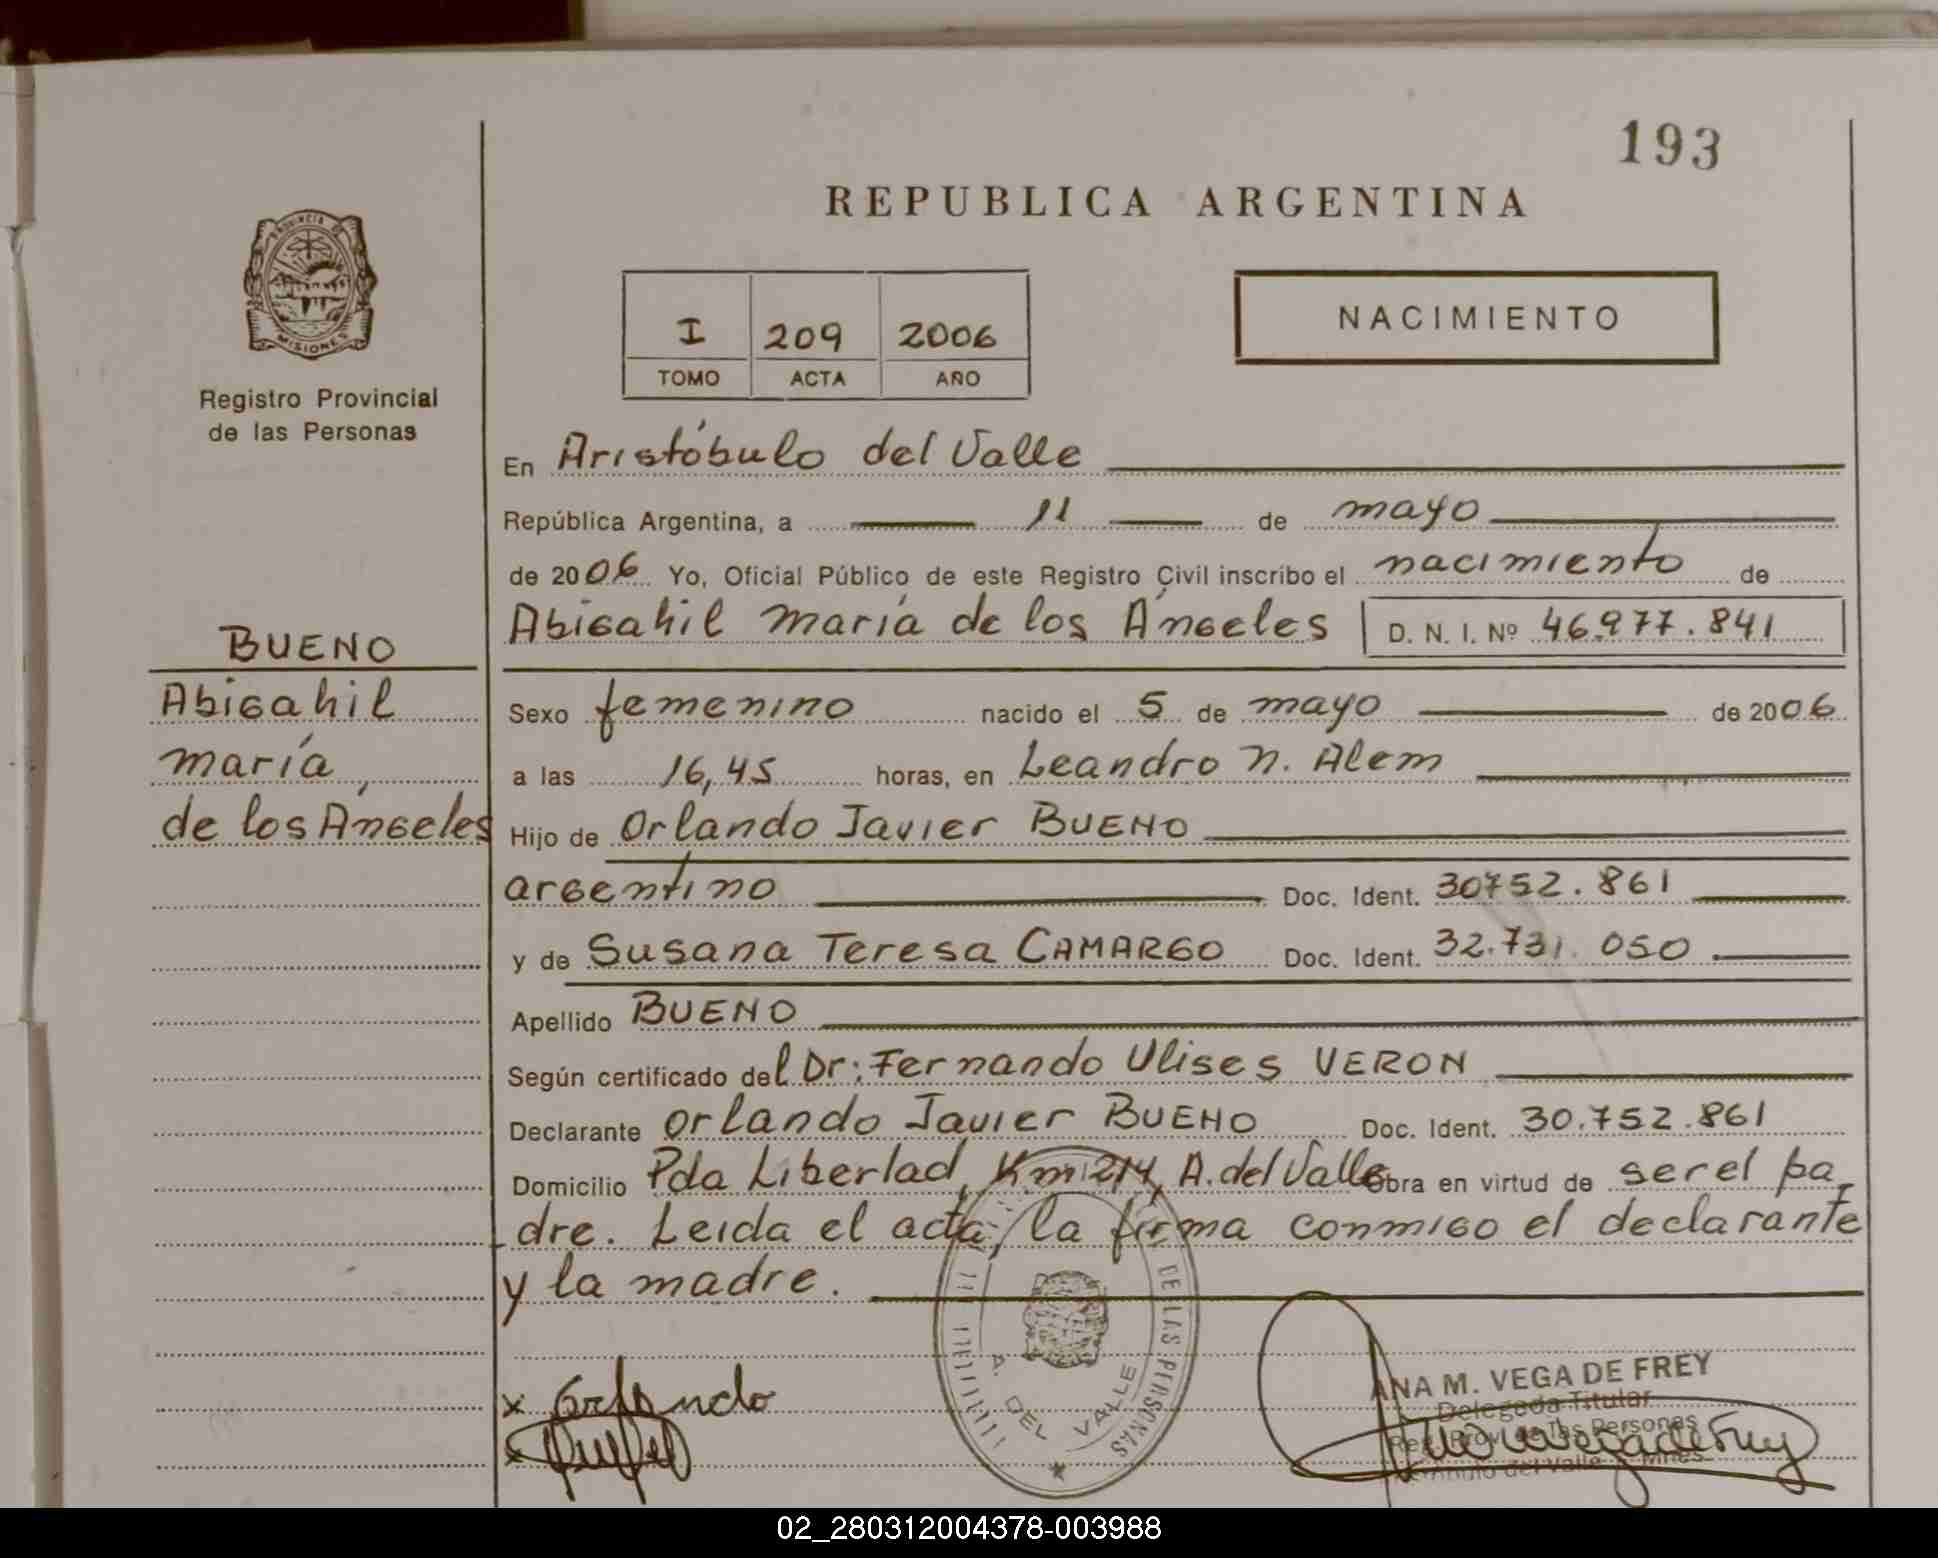 193
REPUBLICA ARGENTINA
PROVINCIA DE
MISIONES
Registro Provincial
de las Personas
I 209 2006
TOMO ACTA AÑO
NACIMIENTO
En Aristóbulo del Valle
República Argentina, a 11 de mayo
de 2006 Yo, Oficial Público de este Registro Civil inscribo el nacimiento de
Abigahil maría de los Ángeles D. N. I. Nº 46.977.841
BUENO
Abigahil
maría
de los Ángeles
Sexo femenino nacido el 5 de mayo de 2006
a las 16,45 horas, en Leandro N. Alem
Hijo de Orlando Javier BUENO
argentino Doc. Ident. 30752.861
y de Susana Teresa CAMARGO Doc. Ident. 32.731.050
Apellido BUENO
Según certificado del Dr: Fernando Ulises VERON
Declarante Orlando Javier BUENO Doc. Ident. 30.752.861
Domicilio Pda Libertad, Km 214, A. del Valle Obra en virtud de ser el pa-
dre. Leida el acta, la firma conmigo el declarante
y la madre.
DE LAS PERSONAS
A. DEL VALLE
x Orlando
x
ANA M. VEGA DE FREY
Delegada Titular
Reg. Prov. de las Personas
del Valle - Mnes.
02_280312004378-003988